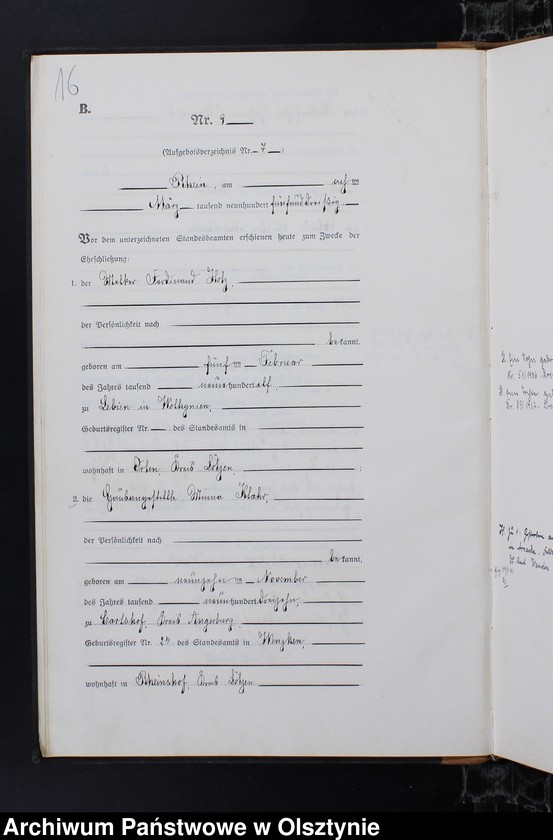 16
B.
Nr. 9
(Aufgebotsverzeichnis Nr. 7)
Rhein, am acht
März tausend neunhundert fünfunddreißig
Vor dem unterzeichneten Standesbeamten erschienen heute zum Zwecke der
Eheschließung:
1. der Melker Ferdinand
der Persönlichkeit nach
bekannt,
geboren am fünften Februar
des Jahres tausend neunhundert elf
zu in Wolhynien,
Geburtsregister Nr. des Standesamts in
wohnhaft in Orlen, Kreis Lötzen
2. die Hausangestellte Minna
der Persönlichkeit nach
bekannt,
geboren am neunzehnten November
des Jahres tausend neunhundert dreizehn,
zu Carlshof, Kreis Angerburg
Geburtsregister Nr. 24 des Standesamts in Wenzken,
wohnhaft in Rheinshof, Kreis Lötzen
Archiwum Państwowe w Olsztynie